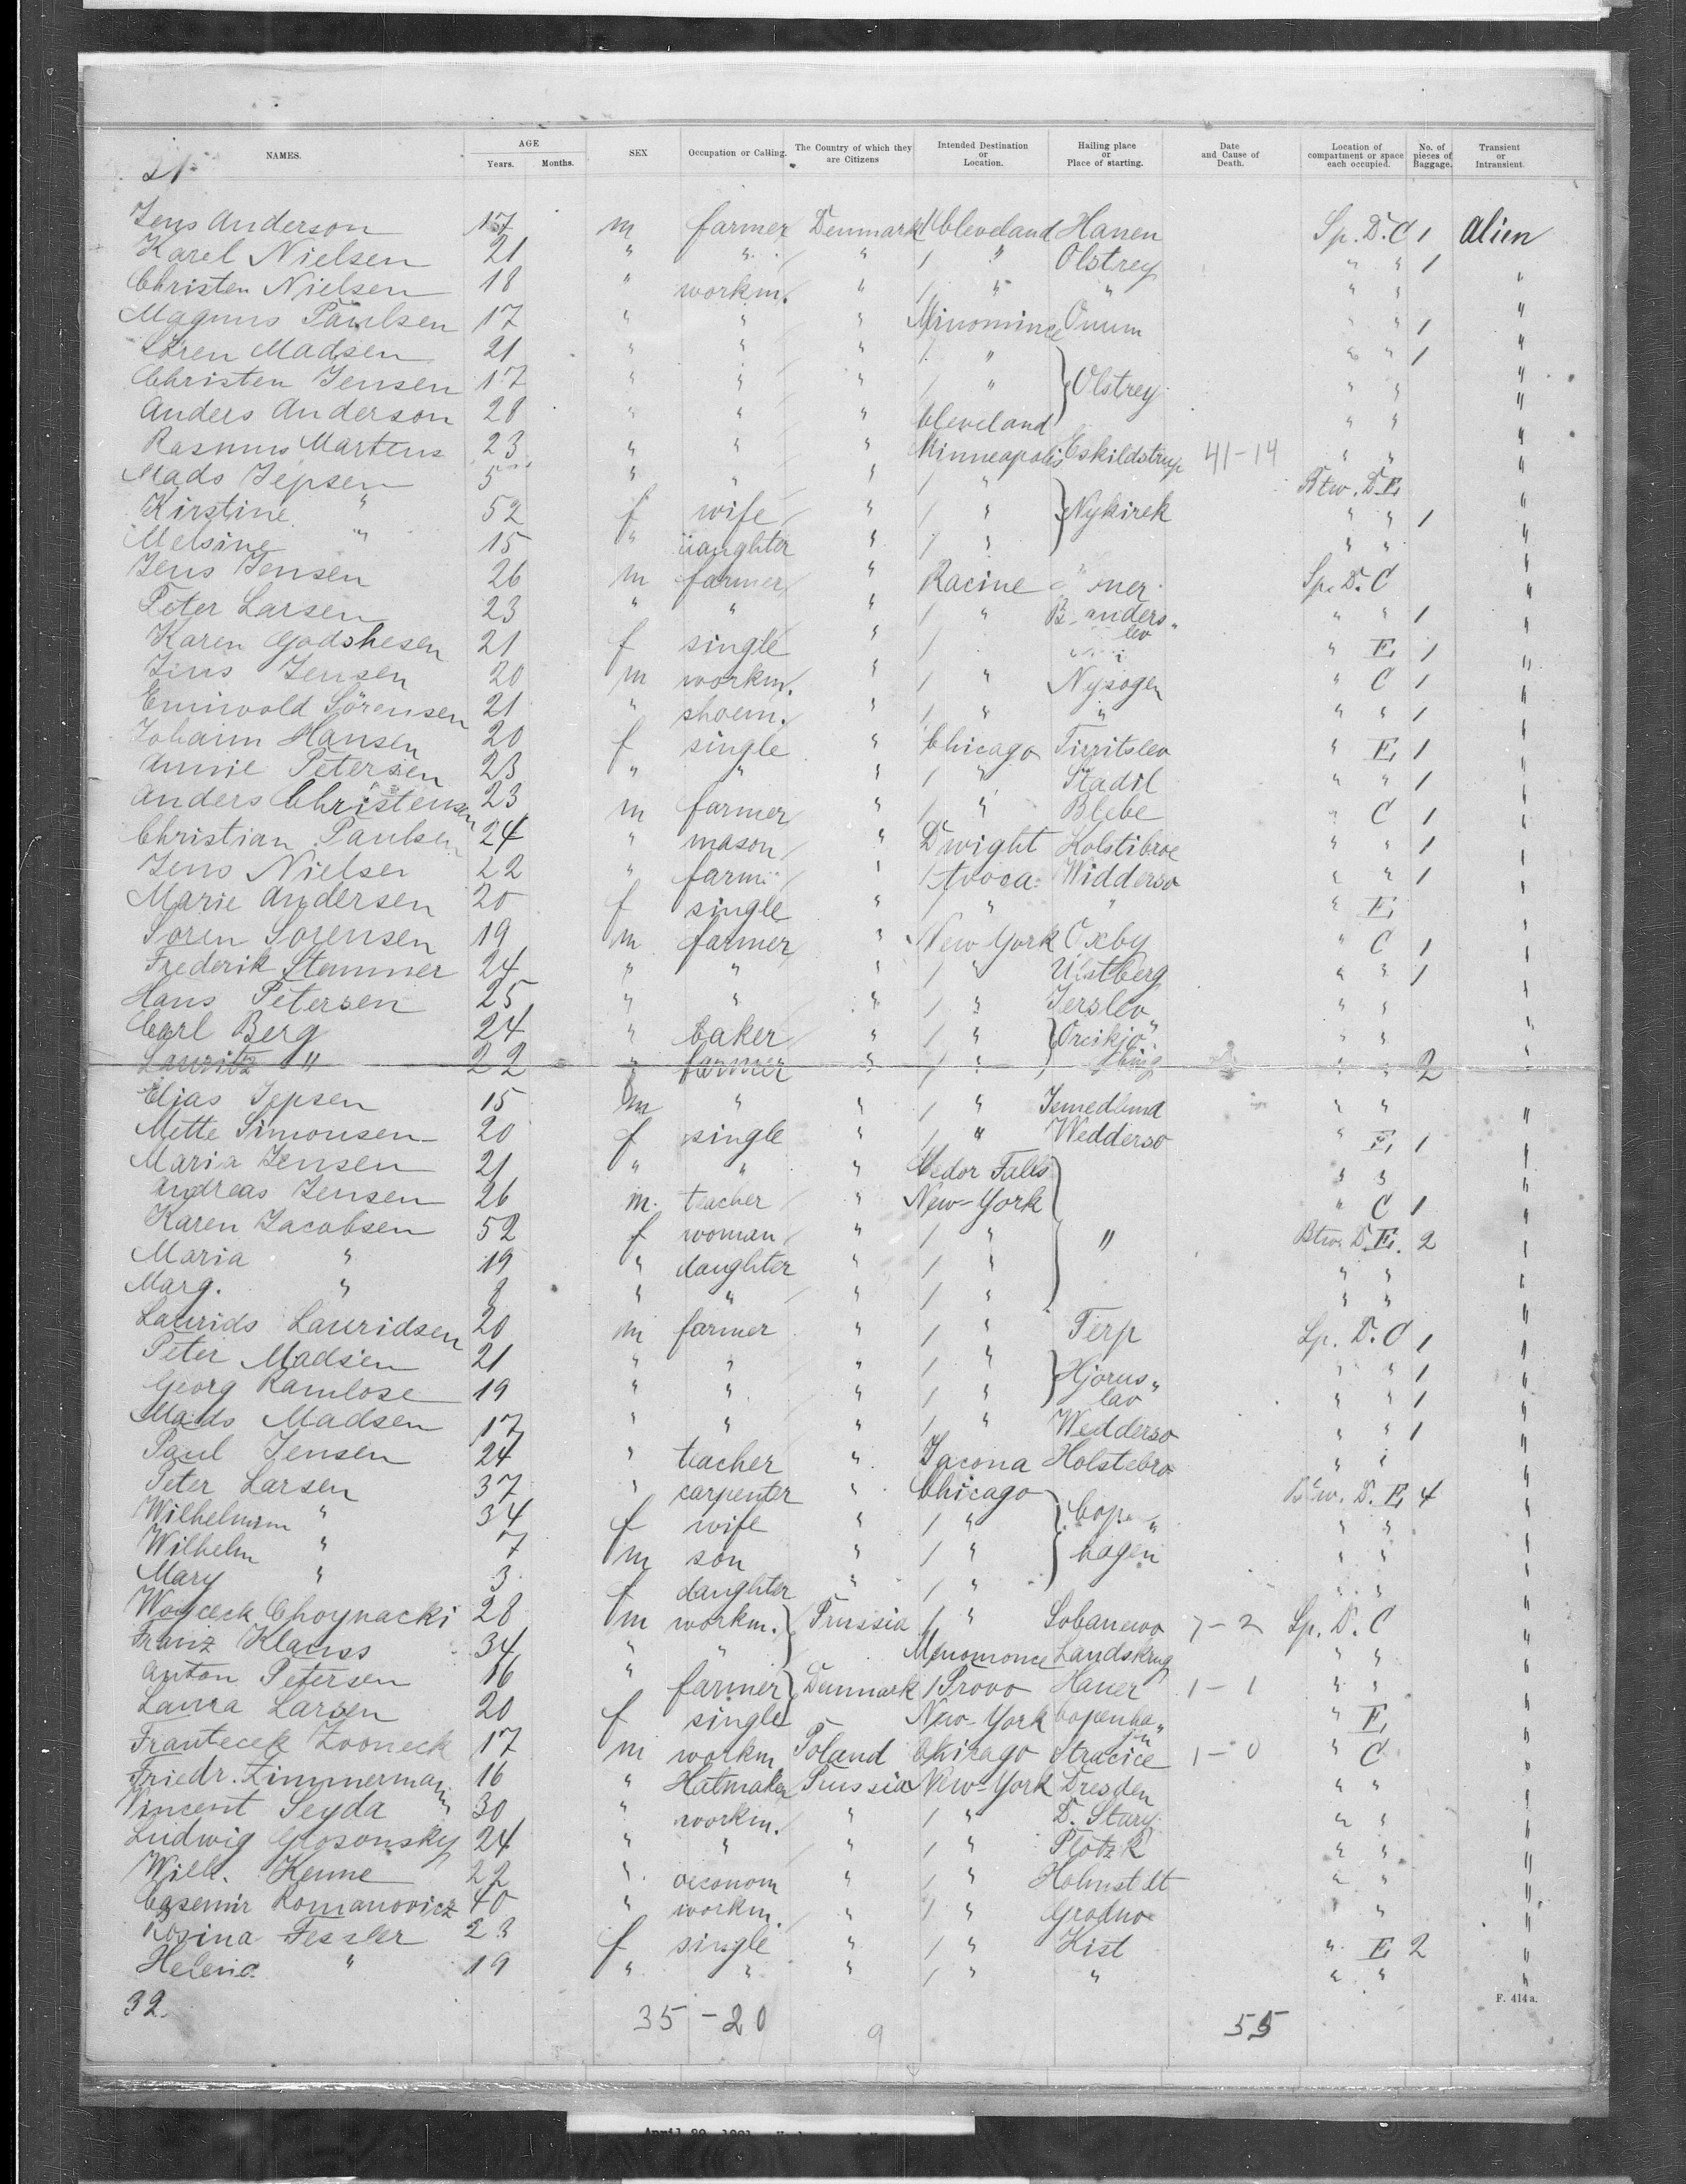 21
NAMES. AGE Years. Months. SEX Occupation or Calling. The Country of which they are Citizens Intended Destination or Location. Hailing place or Place of starting. Date and Cause of Death. Location of compartment or space each occupied. No. of pieces of Baggage. Transient or Intransient.
Jens Anderson 17 m farmer Denmark Cleveland Hanen Sp. D. C 1 alien
Karel Nielsen 21 " " " / " Olstrey " " 1 "
Christen Nielsen 18 " workm. " / " " " " "
Magnus Paulsen 17 " " " Minomine Onum " " 1 "
Sören Madsen 21 " " " / " } Olstrey " " 1 "
Christen Jensen 17 " " " / " " " "
Anders Anderson 28 " " " Cleveland " " "
Rasmus Martens 23 " " " Minneapolis Eskildstrup 41-14 " " "
Mads Jepsen 5 " " " / " } Nykirek Btw. D. E "
Kirstine " 52 f wife " / " " " 1 "
Melsine " 15 " daughter " / " " " "
Jens Jensen 26 m farmer " Racine Sp. D. C "
Peter Larsen 23 " " " / " " " 1 "
Karen Godshesen 21 f single " / " E 1 "
Jins Jensen 20 m workm. " / " Nysogen " C 1 "
Emiwold Sörensen 21 " shoem. " / " " " " 1 "
Johann Hansen 20 f single " Chicago Tirritslev " E 1 "
Annie Petersen 23 " " " / " Stadil " " 1 "
Anders Christensen 23 m farmer " / " Blebe " C 1 "
Christian Paulsen 24 " mason " Dwight Holstibroe " " 1 "
Jens Nielsen 22 " farm " Avoca Widderso " " 1 "
Marie Andersen 20 f single " / " " " E "
Soren Sorensen 19 m farmer " New York Oxby " C 1 "
Frederik Stemmer 24 " " " / " Ulstberg " " 1 "
Hans Petersen 25 " " " / " Jerslev " " "
Carl Berg 24 " baker " / " } Orcikjo " " "
Lauritz " 22 " farmer " / " bing " " 2 "
Elias Jepsen 15 m " " / " Ismedlund " " "
Mette Simonsen 20 f single " / " Wedderso " E 1 "
Maria Jensen 21 " " " Cedor Falls } " " "
Andreas Jensen 26 m. teacher " New-York " C 1 "
Karen Jacobsen 52 f woman " / " } " Btw. D. E. 2 "
Maria " 19 " daughter " / " " " "
Marg. " 9 " " " / " " " "
Laurids Lauridsen 20 m farmer " / " Terp Sp. D. C 1 "
Peter Madsen 21 " " " / " } Hjorus- " " 1 "
Georg Ramlose 19 " " " / " lav " " 1 "
Mads Madsen 17 " " " / " Wedderso " " 1 "
Paul Jensen 24 " teacher " Jacona Holstebro " " "
Peter Larsen 37 " carpenter " Chicago } Btw. D. E 4 "
Wilhelmine " 34 f wife " / " Copen- " " "
Wilhelm " 7 m son " / " hagen " " "
Mary " 3 f daughter " / " " " "
Woyceck Choynacki 28 m workm. } Prussia / " Sobanewo 7-2 Sp. D. C "
Franz Klauss 34 " " Menomonee Landskrug " " "
Anton Petersen 16 " farmer } Denmark / Provo Haner 1-1 " " "
Laura Larsen 20 f single New-York Copenhagen " E "
Frantecek Zvoneck 17 m workm. Poland Chicago Stracice 1-0 " C "
Friedr. Zimmermann 16 " Hatmaker Prussia New-York Dresden " " "
Vincent Seyda 30 " workm. " / " D. Stary " " "
Ludwig Glosonsky 24 " " " / " Plotzk " " "
Wilh. Kenne 22 " oeconom " / " " " "
Casemir Romanovicz 40 " workm. " / " Grodno " " "
Rosina Fessler 23 f single " / " Kist " E 2 "
Helena " 19 " " " / " " " " "
F. 414 a.
32. 35-20 9 55